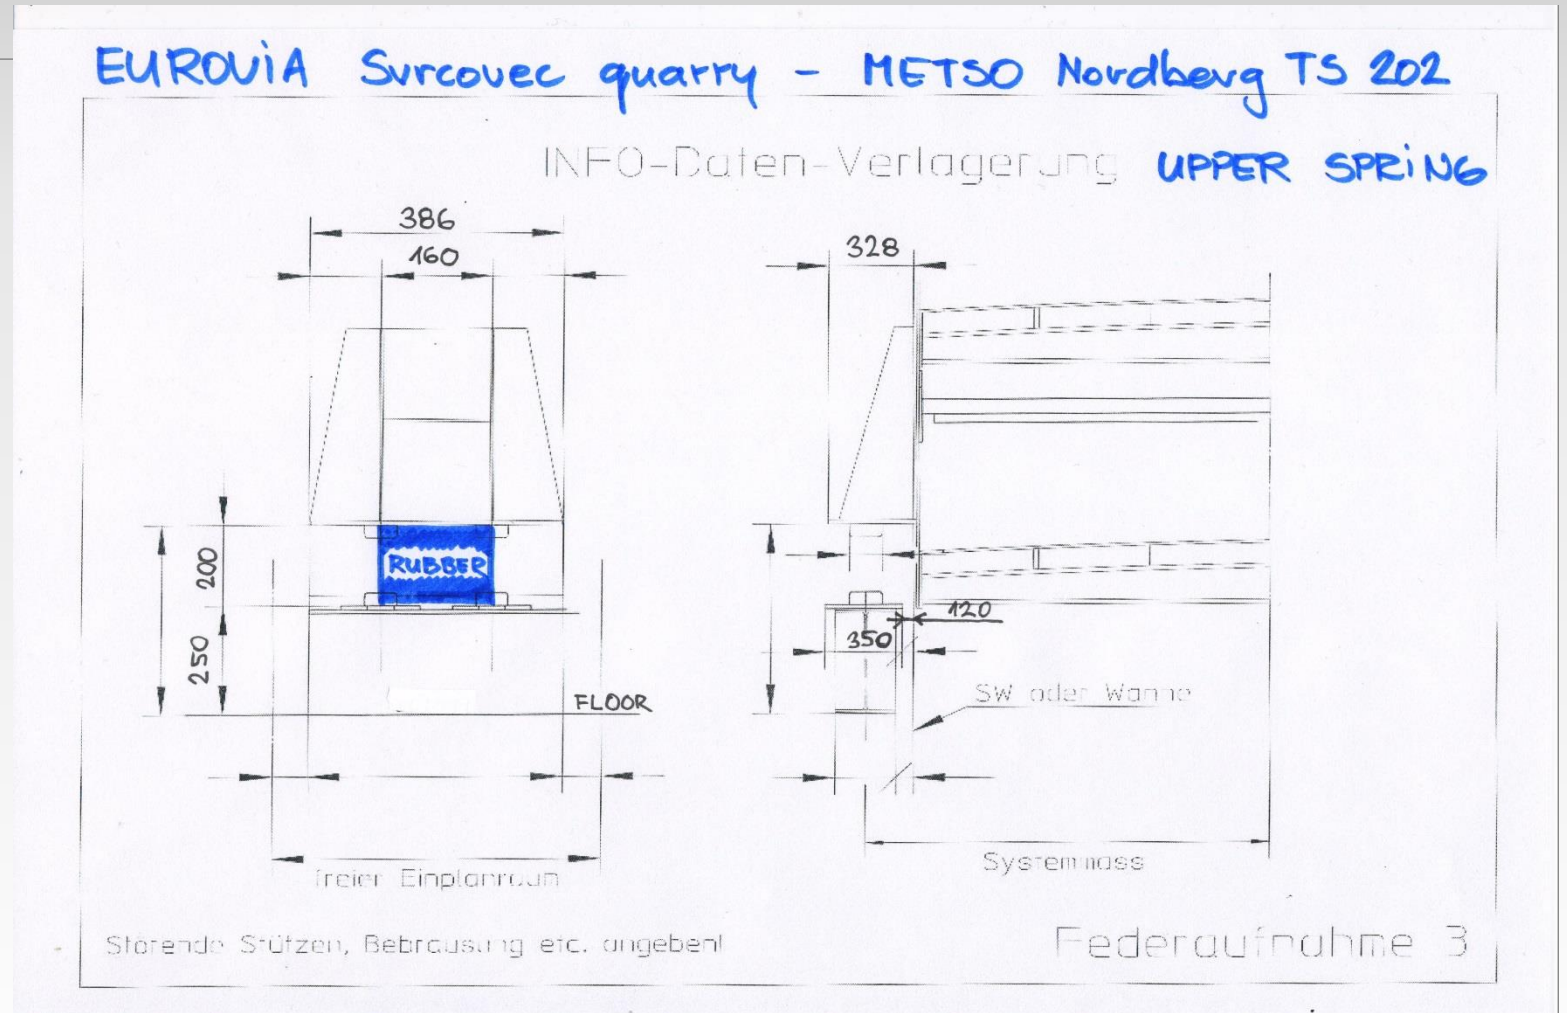 EUROViA Svrcovec quarry - METSO Nordberg TS 202
INFO-Daten-Verlagerung UPPER SPRiNG
386
160
328
200
RUBBER
120
350
250
SW oder Wanne
FLOOR
Systemmass
freier Einplanraum
Störende Stützen, Bebrausung etc. angeben!
Federaufnahme 3